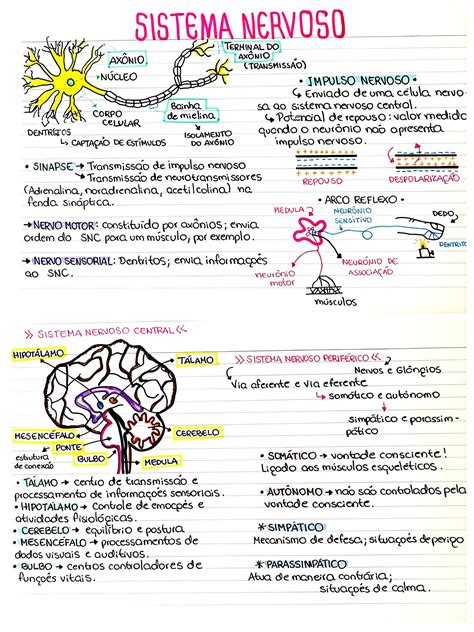 SISTEMA NERVOSO
AXÔNIO
NÚCLEO
TERMINAL DO
AXÔNIO
(TRANSMISSÃO)
CORPO
CELULAR
Bainha
de mielina
DENTRITOS
CAPTAÇÃO DE ESTÍMULOS
ISOLAMENTO
DO AXÔNIO
• IMPULSO NERVOSO •
↳ Enviado de uma célula nervo
sa ao sistema nervoso central.
↳ Potencial de repouso: valor medido
quando o neurônio não apresenta
impulso nervoso.
REPOUSO
DESPOLARIZAÇÃO
• SINAPSE → Transmissão de impulso nervoso
↳ Transmissão de neurotransmissores
(Adrenalina, noradrenalina, acetilcolina) na
fenda sináptica.
→ NERVO MOTOR: constituído por axônios; envia
ordem do SNC para um músculo, por exemplo.
→ NERVO SENSORIAL: Dentritos; envia informações
ao SNC.
• ARCO REFLEXO •
MEDULA
NEURÔNIO
SENSITIVO
DEDO
DENTRITO
neurônio
motor
NEURÔNIO DE
ASSOCIAÇÃO
músculos
>> SISTEMA NERVOSO CENTRAL <<
HIPOTÁLAMO
TÁLAMO
MESENCÉFALO
PONTE
estrutura
de conexão
BULBO
MEDULA
CEREBELO
• TÁLAMO → centro de transmissão e
processamento de informações sensoriais.
• HIPOTÁLAMO → Controle de emoções e
atividades fisiológicas.
• CEREBELO → equilíbrio e postura
• MESENCÉFALO → processamentos de
dados visuais e auditivos.
• BULBO → centros controladores de
funções vitais.
>> SISTEMA NERVOSO PERIFÉRICO <<
Nervos e Glânglios
Via aferente e via eferente
↳ somático e autônomo
simpático e parassim-
pático
• SOMÁTICO → vontade consciente!
Ligado aos músculos esqueléticos.
• AUTÔNOMO → não são controlados pela
vontade consciente.
* SIMPÁTICO
Mecanismo de defesa; situações de perigo
* PARASSIMPÁTICO
Atua de maneira contrária;
situações de calma.